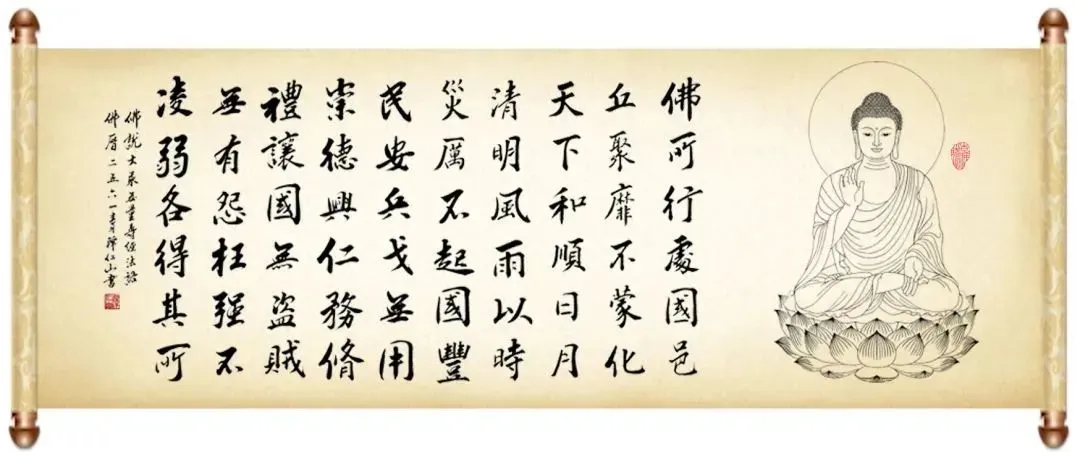 佛所行處國邑
丘聚靡不蒙化
天下和順日月
清明風雨以時
災厲不起國豐
民安兵戈無用
崇德興仁務脩
禮讓國無盜賊
無有怨枉强不
凌弱各得其所
佛說大乘無量壽經法語
佛曆二五六一 釋仁山書